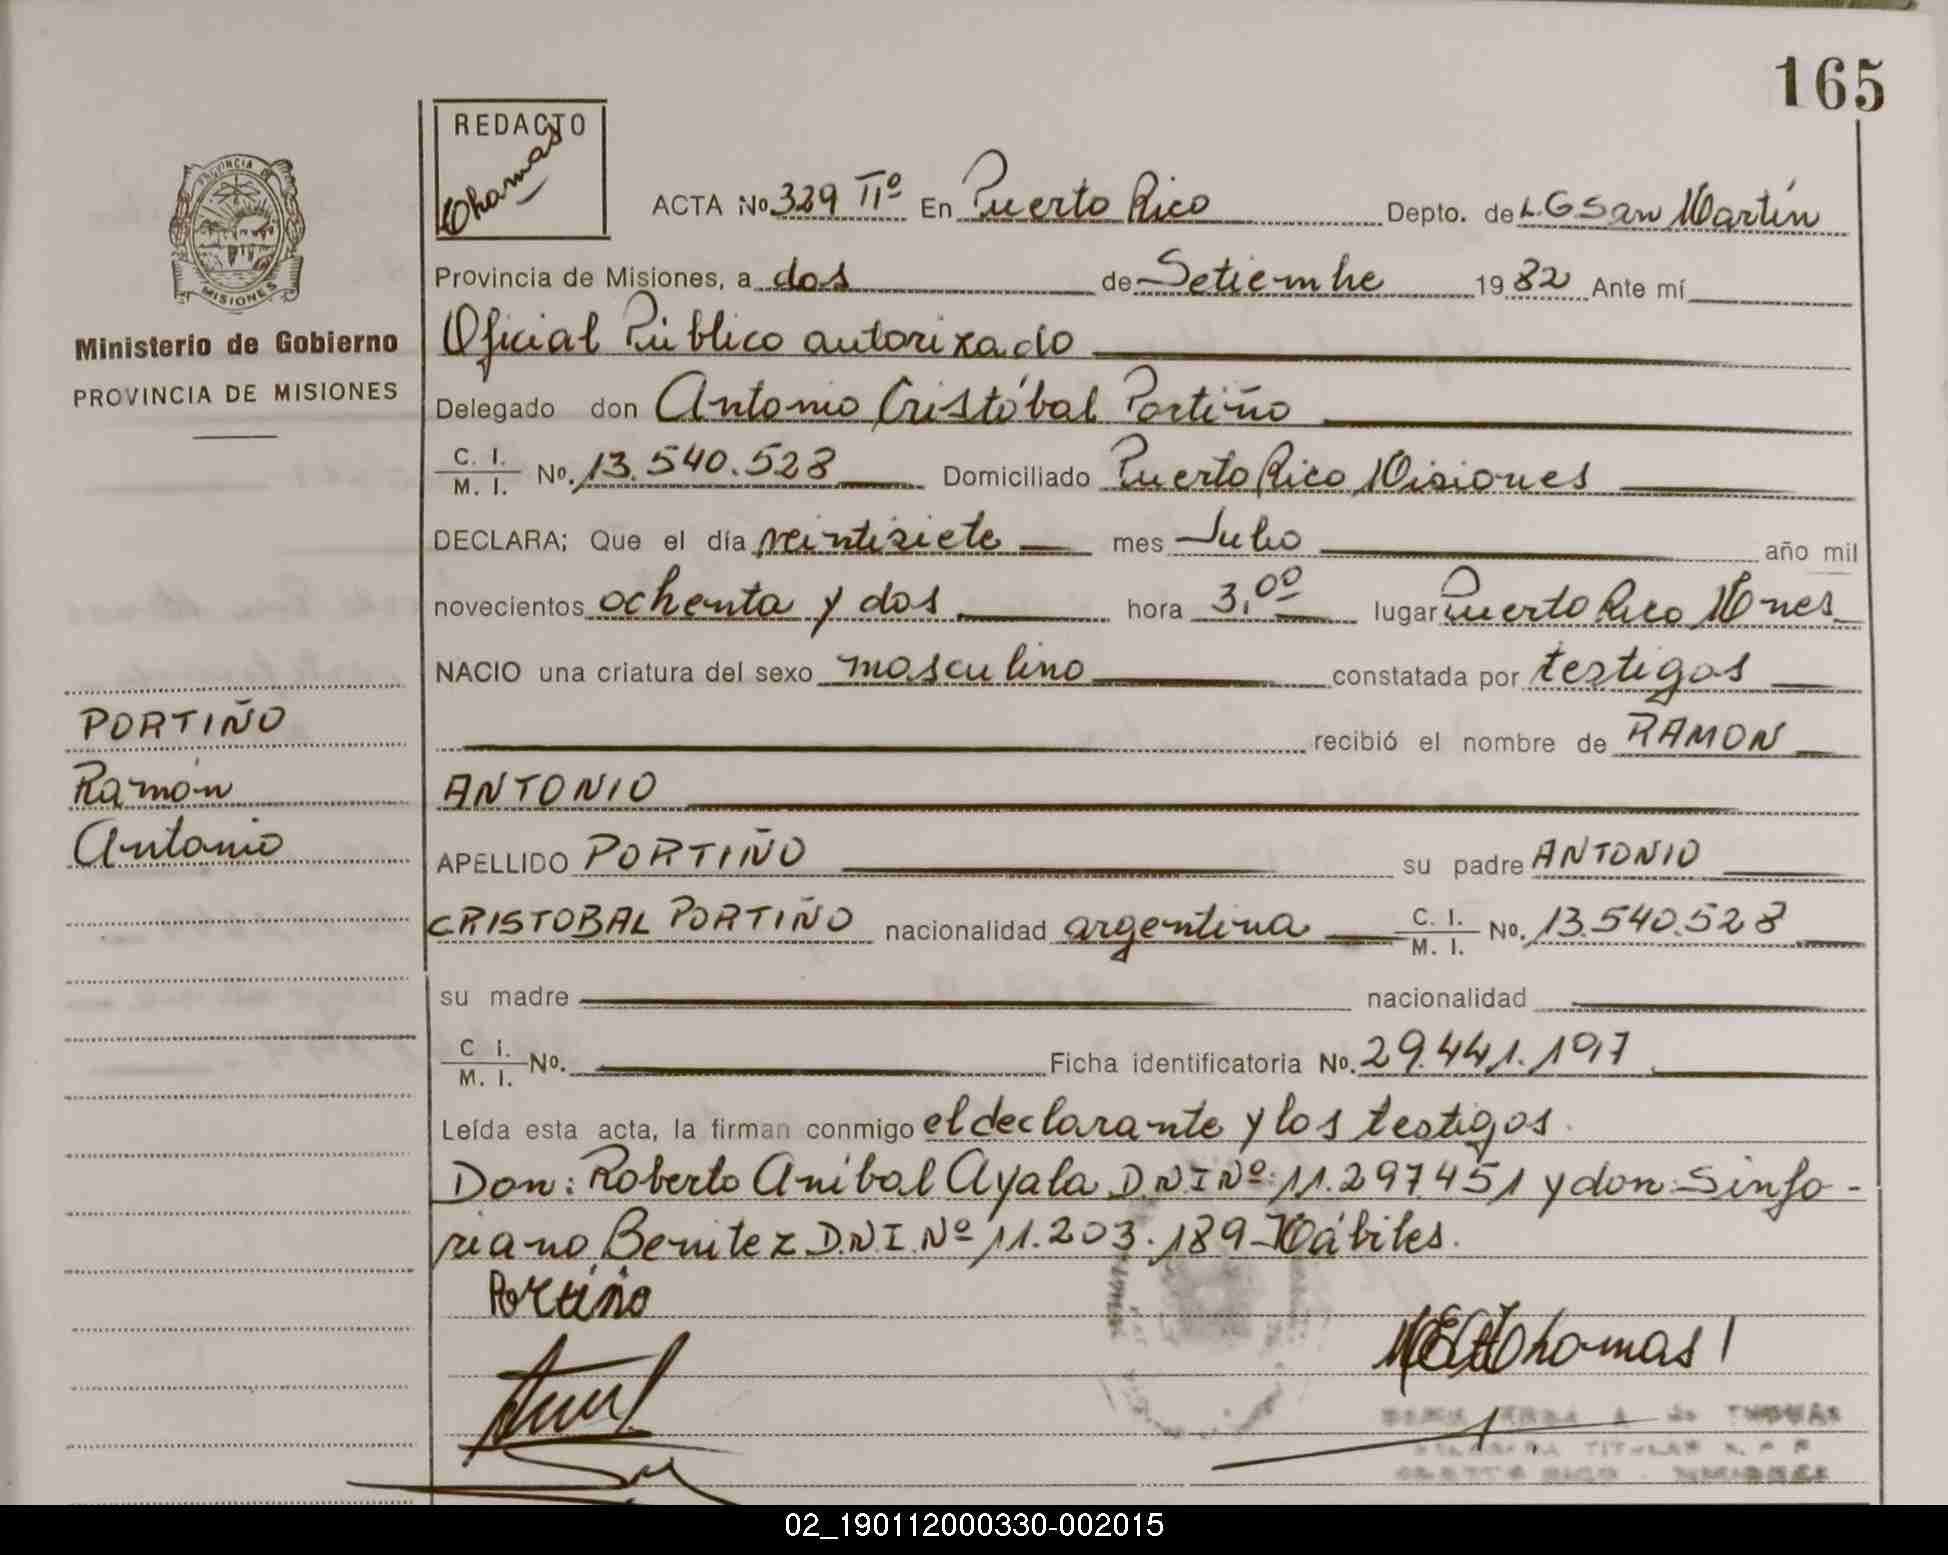 165
REDACTO
Thomas
ACTA No 329 IIº En Puerto Rico Depto. de L.G San Martín
Provincia de Misiones, a dos de Setiembre 1982 Ante mí
PROVINCIA
MISIONES
Ministerio de Gobierno
PROVINCIA DE MISIONES
Oficial Público autorizado
Delegado don Antonio Cristóbal Portiño
C. I.
M. I. No. 13.540.528 Domiciliado Puerto Rico Misiones
DECLARA; Que el día veintisiete mes Julio año mil
novecientos ochenta y dos hora 3,00 lugar Puerto Rico Mnes
NACIO una criatura del sexo masculino constatada por testigos
recibió el nombre de RAMON
ANTONIO
PORTIÑO
Ramón
Antonio
APELLIDO PORTIÑO su padre ANTONIO
CRISTOBAL PORTIÑO nacionalidad argentina C. I.
M. I. No. 13.540.528
su madre nacionalidad
C I.
M. I. No. Ficha identificatoria No. 29.441.197
Leída esta acta, la firman conmigo el declarante y los testigos.
Don: Roberto Anibal Ayala D.N.I Nº: 11.297.451 y don Sinfo-
riano Benitez D.N.I. Nº 11.203.189 Hábiles.
Portiño
Thomas
02_190112000330-002015